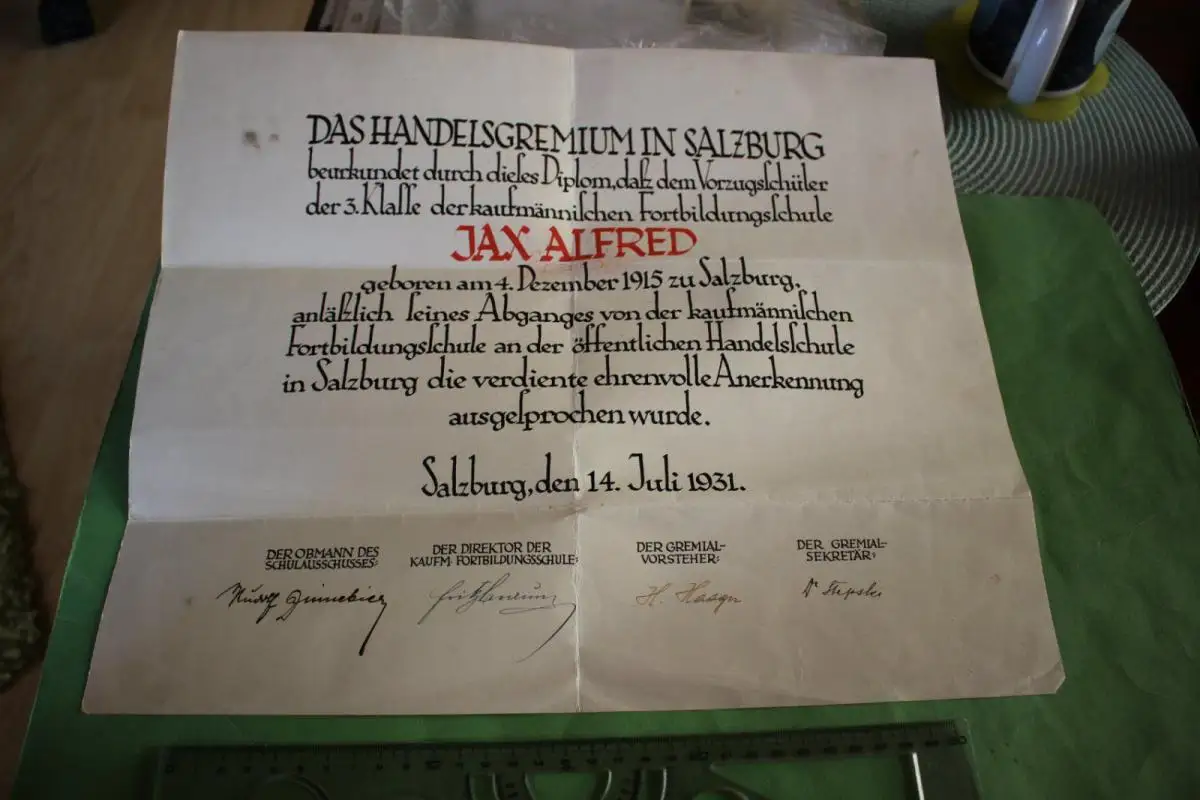 DAS HANDELSGREMIUM IN SALZBURG
beurkundet durch dieses Diplom, daß dem Vorzugsschüler
der 3. Klasse der kaufmännischen Fortbildungsschule
JAX ALFRED
geboren am 4. Dezember 1915 zu Salzburg,
anläßlich seines Abganges von der kaufmännischen
Fortbildungsschule an der öffentlichen Handelsschule
in Salzburg die verdiente ehrenvolle Anerkennung
ausgesprochen wurde.
Salzburg, den 14. Juli 1931.
DER OBMANN DES
SCHULAUSSCHUSSES:
DER DIREKTOR DER
KAUFM. FORTBILDUNGSSCHULE:
DER GREMIAL-
VORSTEHER:
DER GREMIAL-
SEKRETÄR:
Rudolf
H. Haagn
Dr